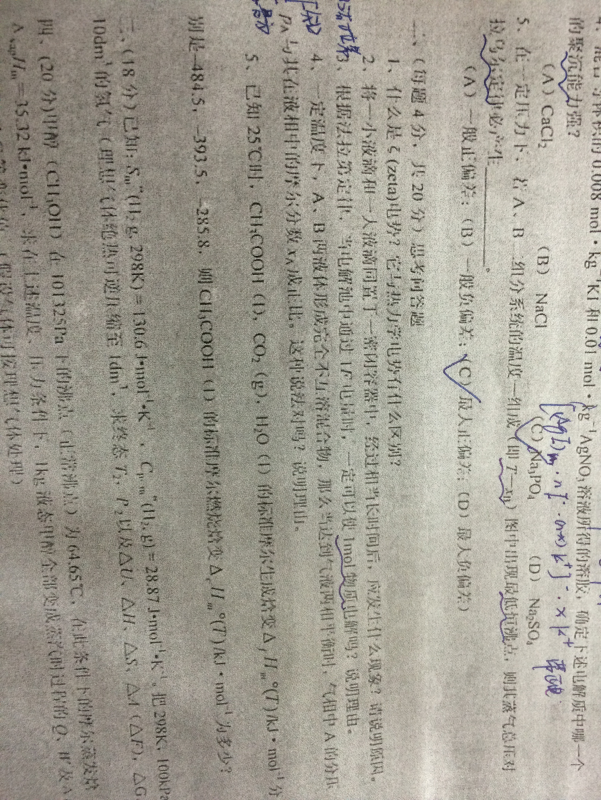 4、混合等体积的 0.008 mol·kg⁻¹KI 和 0.01 mol·kg⁻¹AgNO₃ 溶液所得的溶胶，确定下述电解质中哪一个
的聚沉能力强？
(A) CaCl₂ (B) NaCl (C) Na₃PO₄ (D) Na₂SO₄
5、在一定压力下，若 A、B 二组分系统的温度—组成（即 T—x_B）图中出现最低恒沸点，则其蒸气总压对
拉乌尔定律必产生________。
（A）一般正偏差；（B）一般负偏差；（C）最大正偏差；（D）最大负偏差）
二、（每题 4 分，共 20 分）思考问答题
1、什么是 ξ (zeta)电势？它与热力学电势有什么区别？
2、将一小液滴和一大液滴同置于一密闭容器中，经过相当长时间后，应发生什么现象？请说明原因。
3、根据法拉第定律，当电解池中通过 1F 电量时，一定可以使 1mol 物质电解吗？说明理由。
4、一定温度下，A、B 两液体形成完全不互溶混合物，那么当达到气液两相平衡时，气相中 A 的分压
p_A 与其在液相中的摩尔分数 x_A 成正比。这种说法对吗？说明理由。
5、已知 25℃时，CH₃COOH（l）、CO₂（g）、H₂O（l）的标准摩尔生成焓变 Δ_f H_m^θ(T)/kJ·mol⁻¹ 分
别是-484.5、-393.5、-285.8，则 CH₃COOH（l）的标准摩尔燃烧焓变 Δ_c H_m^θ(T)/kJ·mol⁻¹ 为多少？
三、（18 分）已知：S_m^θ(H₂, g, 298K) = 130.6 J·mol⁻¹·K⁻¹，C_p,m^θ(H₂, g) = 28.87 J·mol⁻¹·K⁻¹。把 298K、100kPa
10dm³ 的氢气（理想气体绝热可逆压缩至 1dm³，求终态 T₂、P₂ 以及△U、△H、△S、△A（△F）、△G
四、（20 分)甲醇（CH₃OH）在 101325Pa 下的沸点（正常沸点）为 64.65℃，在此条件下的摩尔蒸发焓
Δ_vap H_m = 35.32 kJ·mol⁻¹，求在上述温度、压力条件下，1kg 液态甲醇全部变成蒸汽时过程的 Q、W 及 Δ
气体可按理想气体处理）